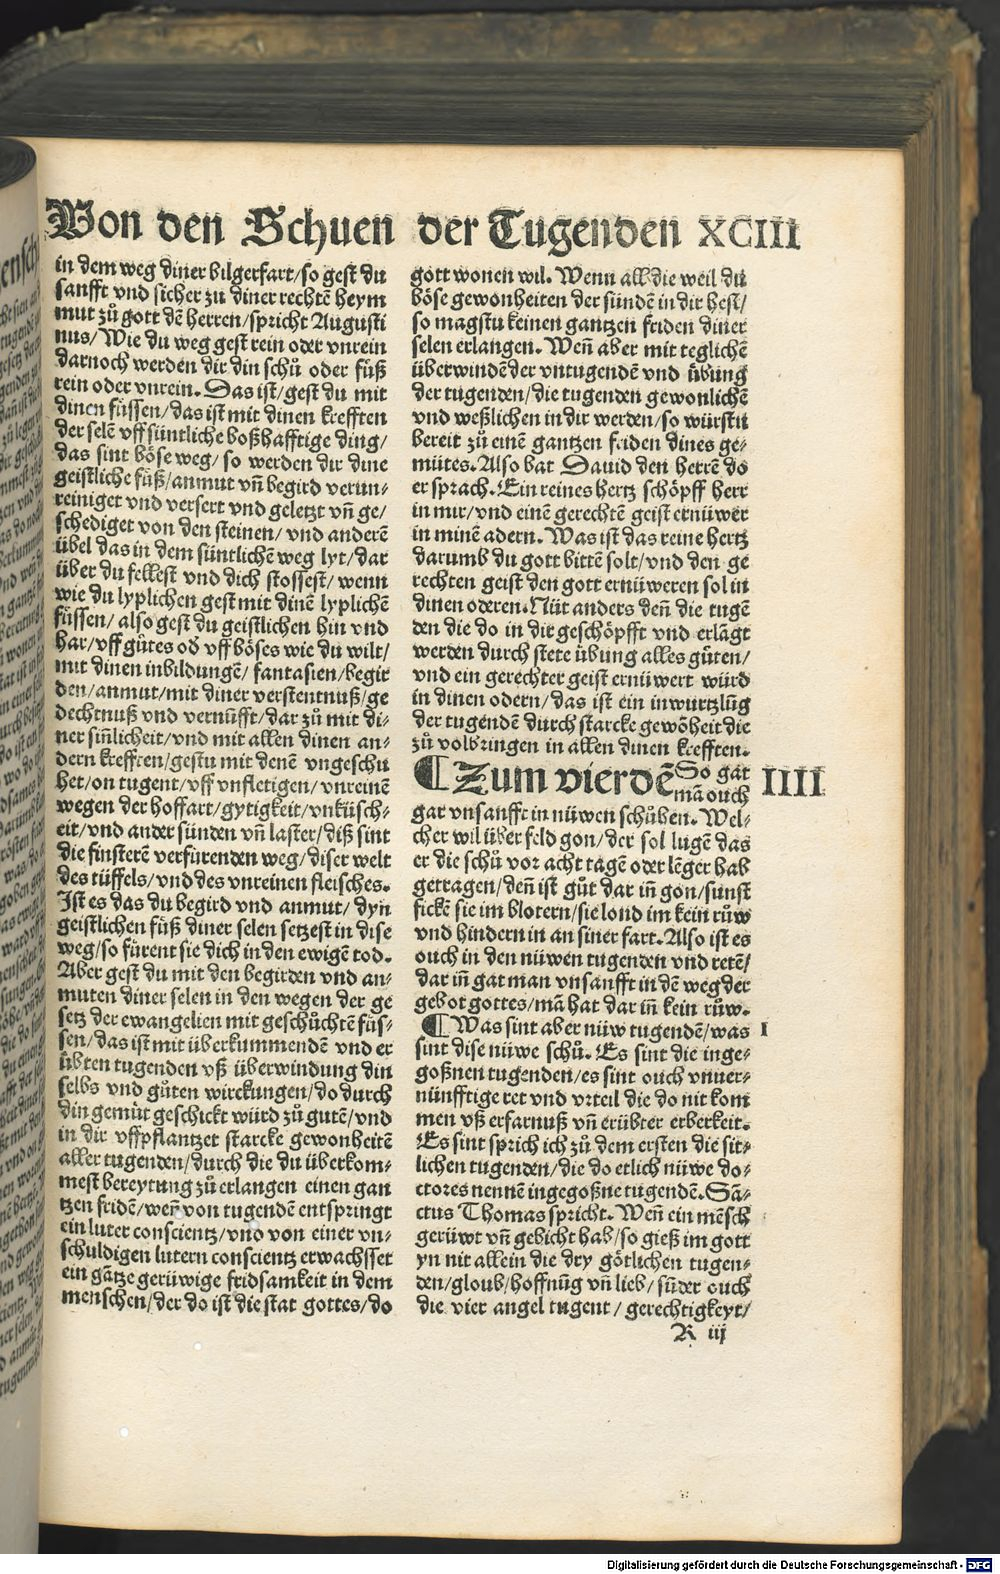 Von den Schuen der Tugenden XCIII
in dem weg diner bilgerfart/so gest du
sanfft vnd sicher zu diner rechtẽ heym
mut zů gott dẽ herren/spricht Augusti
nus/Wie du weg gest rein oder vnrein
darnoch werden dir din schů oder füß
rein oder vnrein. Das ist/gest du mit
dinen füssen/das ist mit dinen krefften
der selẽ vff süntliche boßhafftige ding/
das sint böse weg/so werden dir dine
geistliche füß/anmut vñ begird verun⸗
reiniget vnd versert vnd geletzt vñ ge/
schediget von den steinen/vnd anderẽ
übel das in dem süntlichẽ weg lyt/dar
über du fellest vnd dich stossest/wenn
wie du lyplichen gest mit dinẽ lyplichẽ
füssen/also gest du geistlichen hin vnd
har/vff gůtes oď vff böses wie du wilt/
mit dinen inbildungẽ/fantasien/begir
den/anmut/mit diner verstentnuß/ge
dechtnuß vnd vernũfft/dar zů mit di⸗
ner siñlicheit/vnd mit allen dinen an⸗
dern krefften/gestu mit denẽ vngeschu
het/on tugent/vff vnfletigen/vnreinẽ
wegen der hoffart/gytigkeit/vnküsch⸗
eit/vnd ander sünden vñ laster/diß sint
die finsterẽ verfürenden weg/diser welt
des tüffels/vnd des vnreinen fleisches.
Ist es das du begird vnd anmut/dyn
geistlichen füß diner selen setzest in dise
weg/so fürent sie dich in den ewigẽ tod.
Aber gest du mit den begirden vnd an⸗
muten diner selen in den wegen der ge
setz der ewangelien mit geschůchtẽ füs⸗
sen/das ist mit überkummenden vnd er
übten tugenden vß überwindung din
selbs vnd gůten wirckungen/do durch
din gemüt geschickt würd zů gutẽ/vnd
in dir vffpflantzet starcke gewonheitẽ
aller tugenden/durch die du überkom⸗
mest bereytung zů erlangen einen gan
tzen fridẽ/weñ von tugendẽ entspringt
ein luter conscientz/vnd von einer vn⸗
schuldigen lutern conscientz erwachsset
ein gãtze gerüwige fridsamkeit in dem
menschen/der do ist die stat gottes/do
gott wonen wil. Wenn all die weil du
böse gewonheiten der sündẽ in dir hest/
so magstu keinen gantzen friden diner
selen erlangen. Weñ aber mit teglichẽ
überwindẽ der vntugendẽ vnd übung
der tugenden/die tugenden gewonlichẽ
vnd weßlichen in dir werden/so würstu
bereit zů einẽ gantzen friden dines ge⸗
mütes. Also bat Dauid den herrẽ do
er sprach. Ein reines hertz schöpff herr
in mir/vnd einẽ gerechtẽ geist ernüwer
in minẽ adern. Was ist das reine hertz
darumb du gott bittẽ solt/vnd den ge
rechten geist den gott ernüweren sol in
dinen oderen. Nüt anders deñ die tugẽ
den die do in dir geschöpfft vnd erlãgt
werden durch stete übung alles gůten/
vnd ein gerechter geist ernüwert würd
in dinen odern/das ist ein inwurtzlũg
der tugendẽ durch starcke gewõheit die
zů volbringen in allen dinen krefften.
¶ Zum vierdẽ So gat IIII
mã ouch
gar vnsanfft in nüwen schůhen. Wel⸗
cher wil über feld gon/der sol lugẽ das
er die schů vor acht tagẽ oder lẽger hab
getragen/deñ ist gůt dar iñ gon/sunst
fickẽ sie im blotern/sie lond im kein růw
vnd hindern in an siner fart. Also ist es
ouch in den nüwen tugenden vnd retẽ/
dar iñ gat man vnsanfft in dẽ weg der
gebot gottes/mã hat dar iñ kein růw.
¶ Was sint aber nüw tugendẽ/was I
sint dise nüwe schů. Es sint die inge⸗
goßnen tugenden/es sint ouch vnuer⸗
nünfftige ret vnd vrteil die do nit kom
men vß erfarnuß vñ erübter erberkeit.
Es sint sprich ich zů dem ersten die sit⸗
lichen tugenden/die do etlich nüwe do⸗
ctores nennẽ ingegoßne tugendẽ. Sã⸗
ctus Thomas spricht. Weñ ein mẽsch
gerüwt vñ gebicht hab/so gieß im gott
yn nit allein die dry götlichen tugen⸗
den/gloub/hoffnũg vñ lieb/sũder ouch
die vier angel tugent/gerechtigkeyt/
R iij
Digitalisierung gefördert durch die Deutsche Forschungsgemeinschaft - DFG